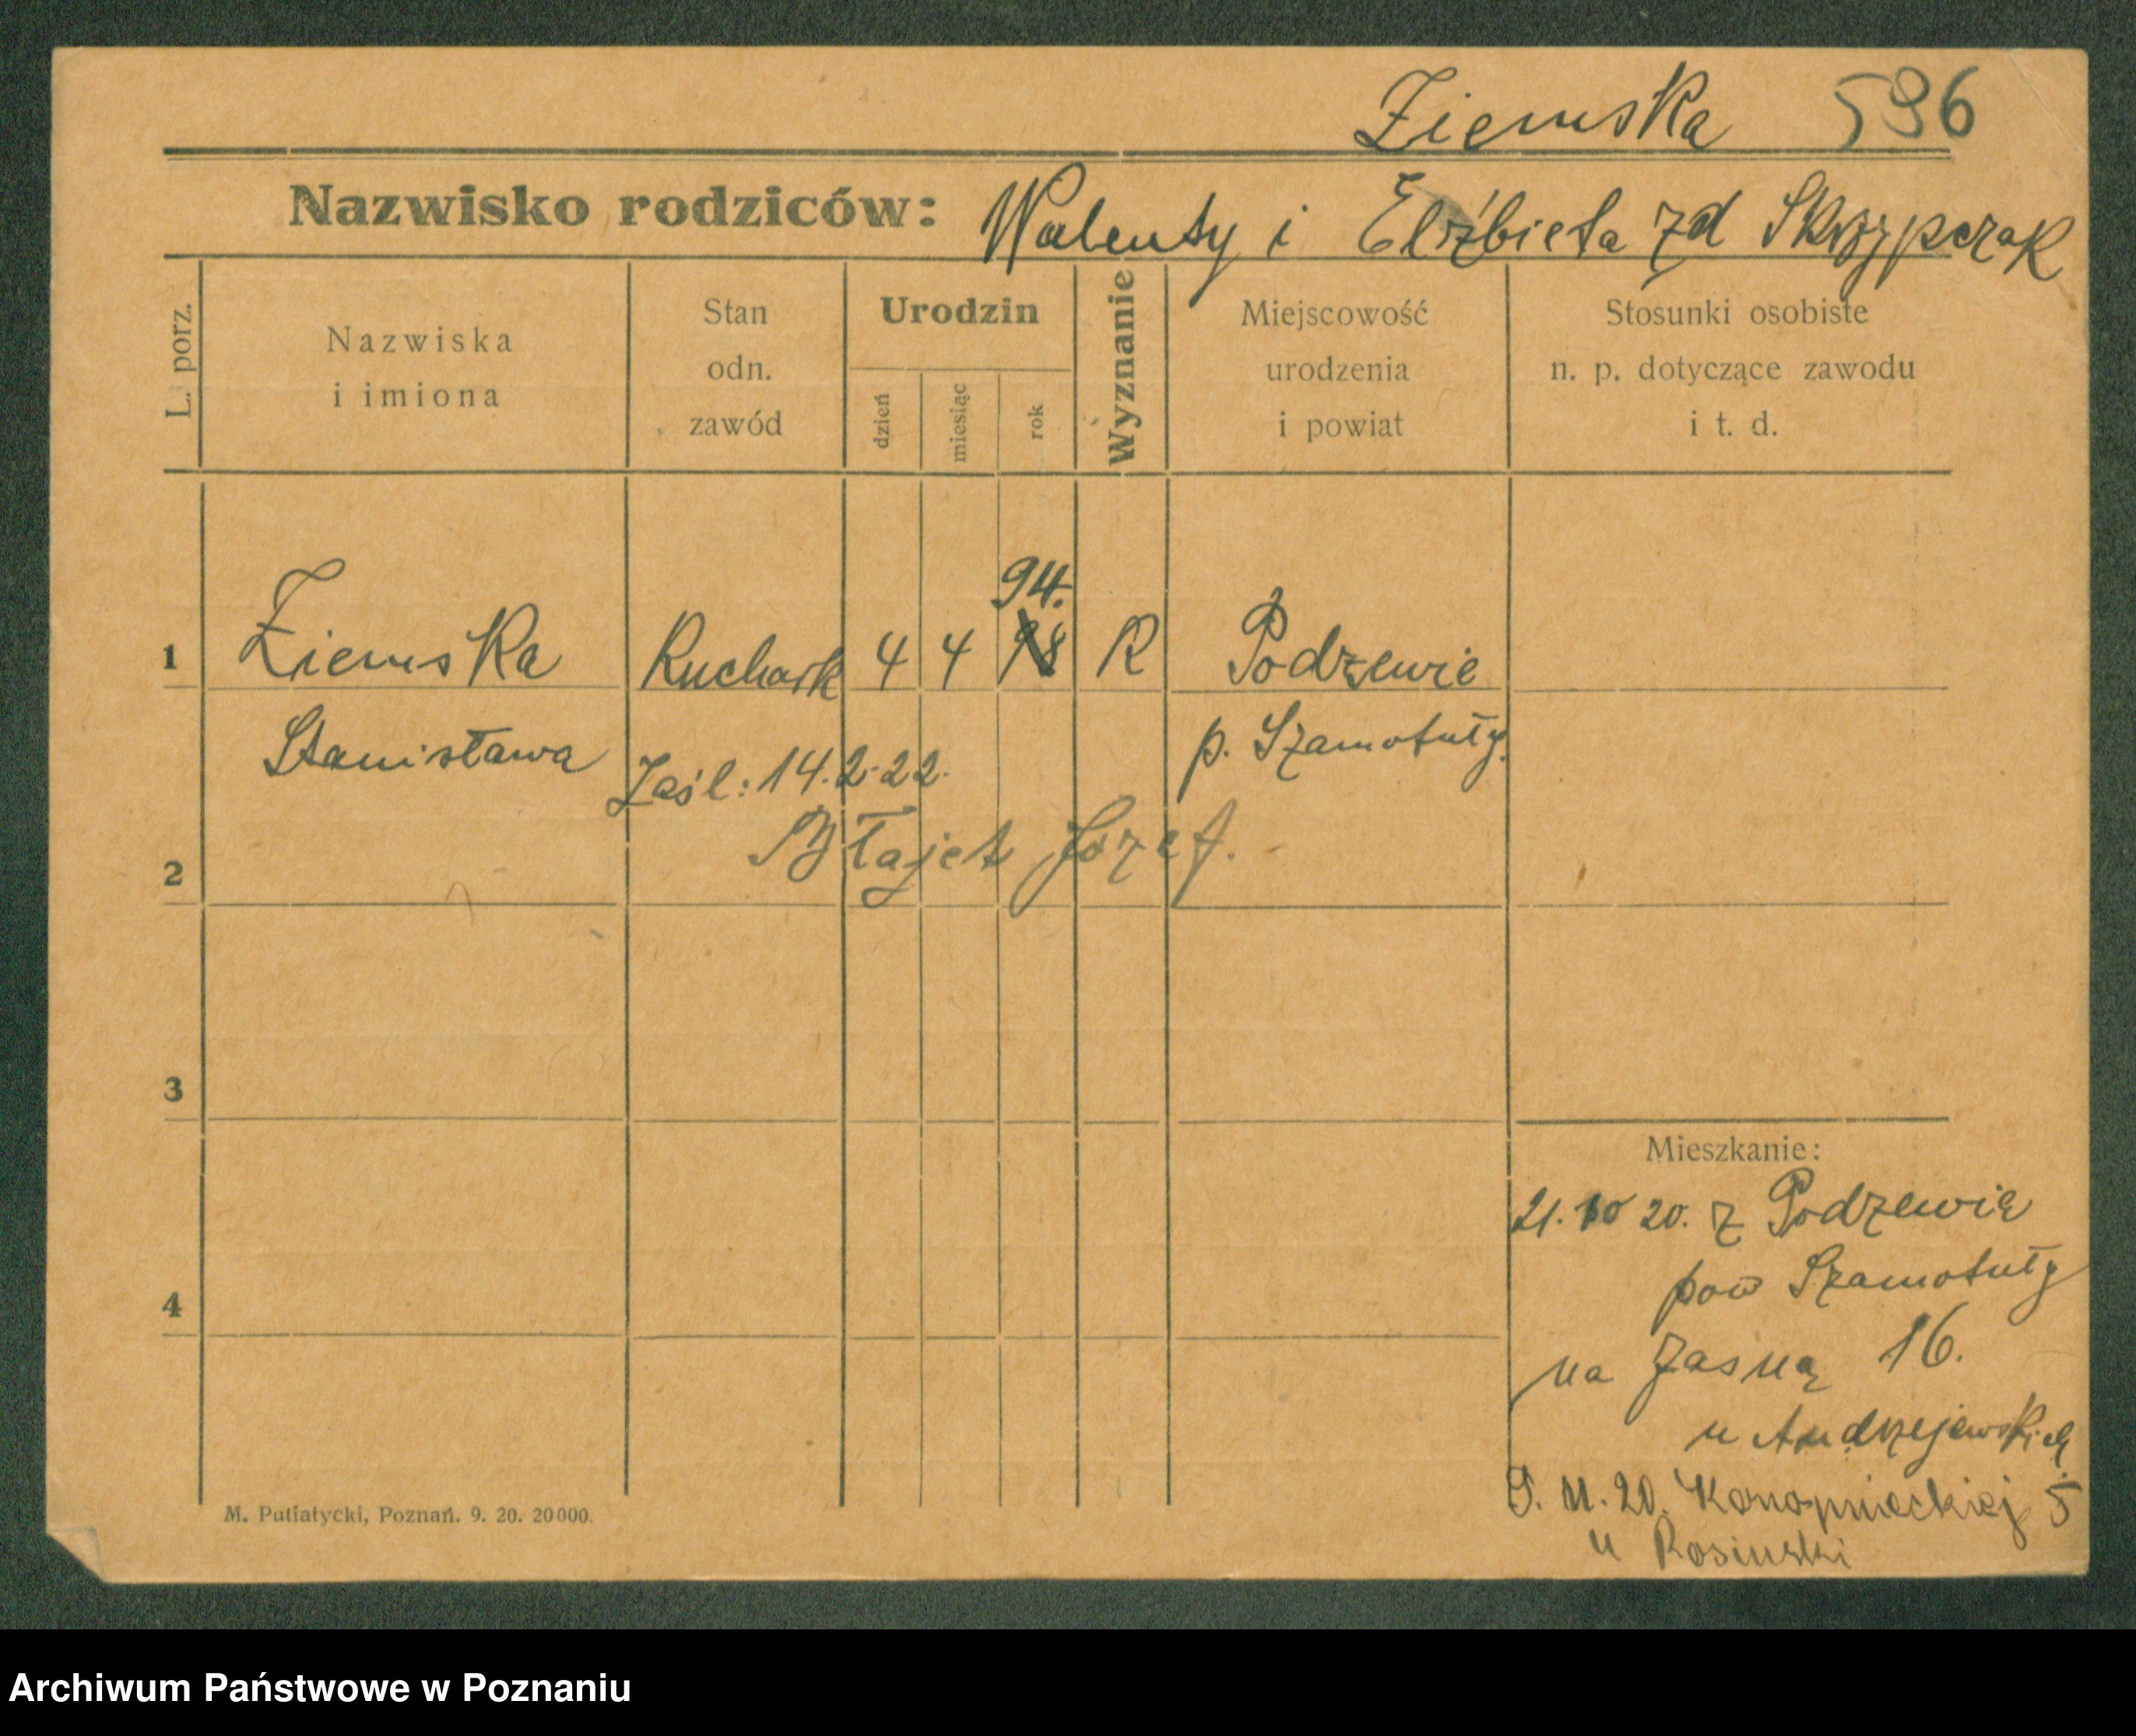 Ziemska 596
Nazwisko rodziców: Walenty i Elżbieta zd Skrzypczak
L. porz.
Nazwiska
i imiona
Stan
odn.
zawód
Urodzin
dzień
miesiąc
rok
Wyznanie
Miejscowość
urodzenia
i powiat
Stosunki osobiste
n. p. dotyczące zawodu
i t. d.
94.
1 Ziemska Kuchark 4 4 98 R Podrzewie
Stanisława p. Szamotuły.
Zaśl: 14.2.22.
Błajet Józef.
2
3
4
Mieszkanie:
21. 10 20. z Podrzewie
pow Szamotuły
na Jasną 16.
u Andrzejewskich
9. 11. 20. Konopnieckiej 5
u Rosinski
M. Putiatycki, Poznań. 9. 20. 20000.
Archiwum Państwowe w Poznaniu